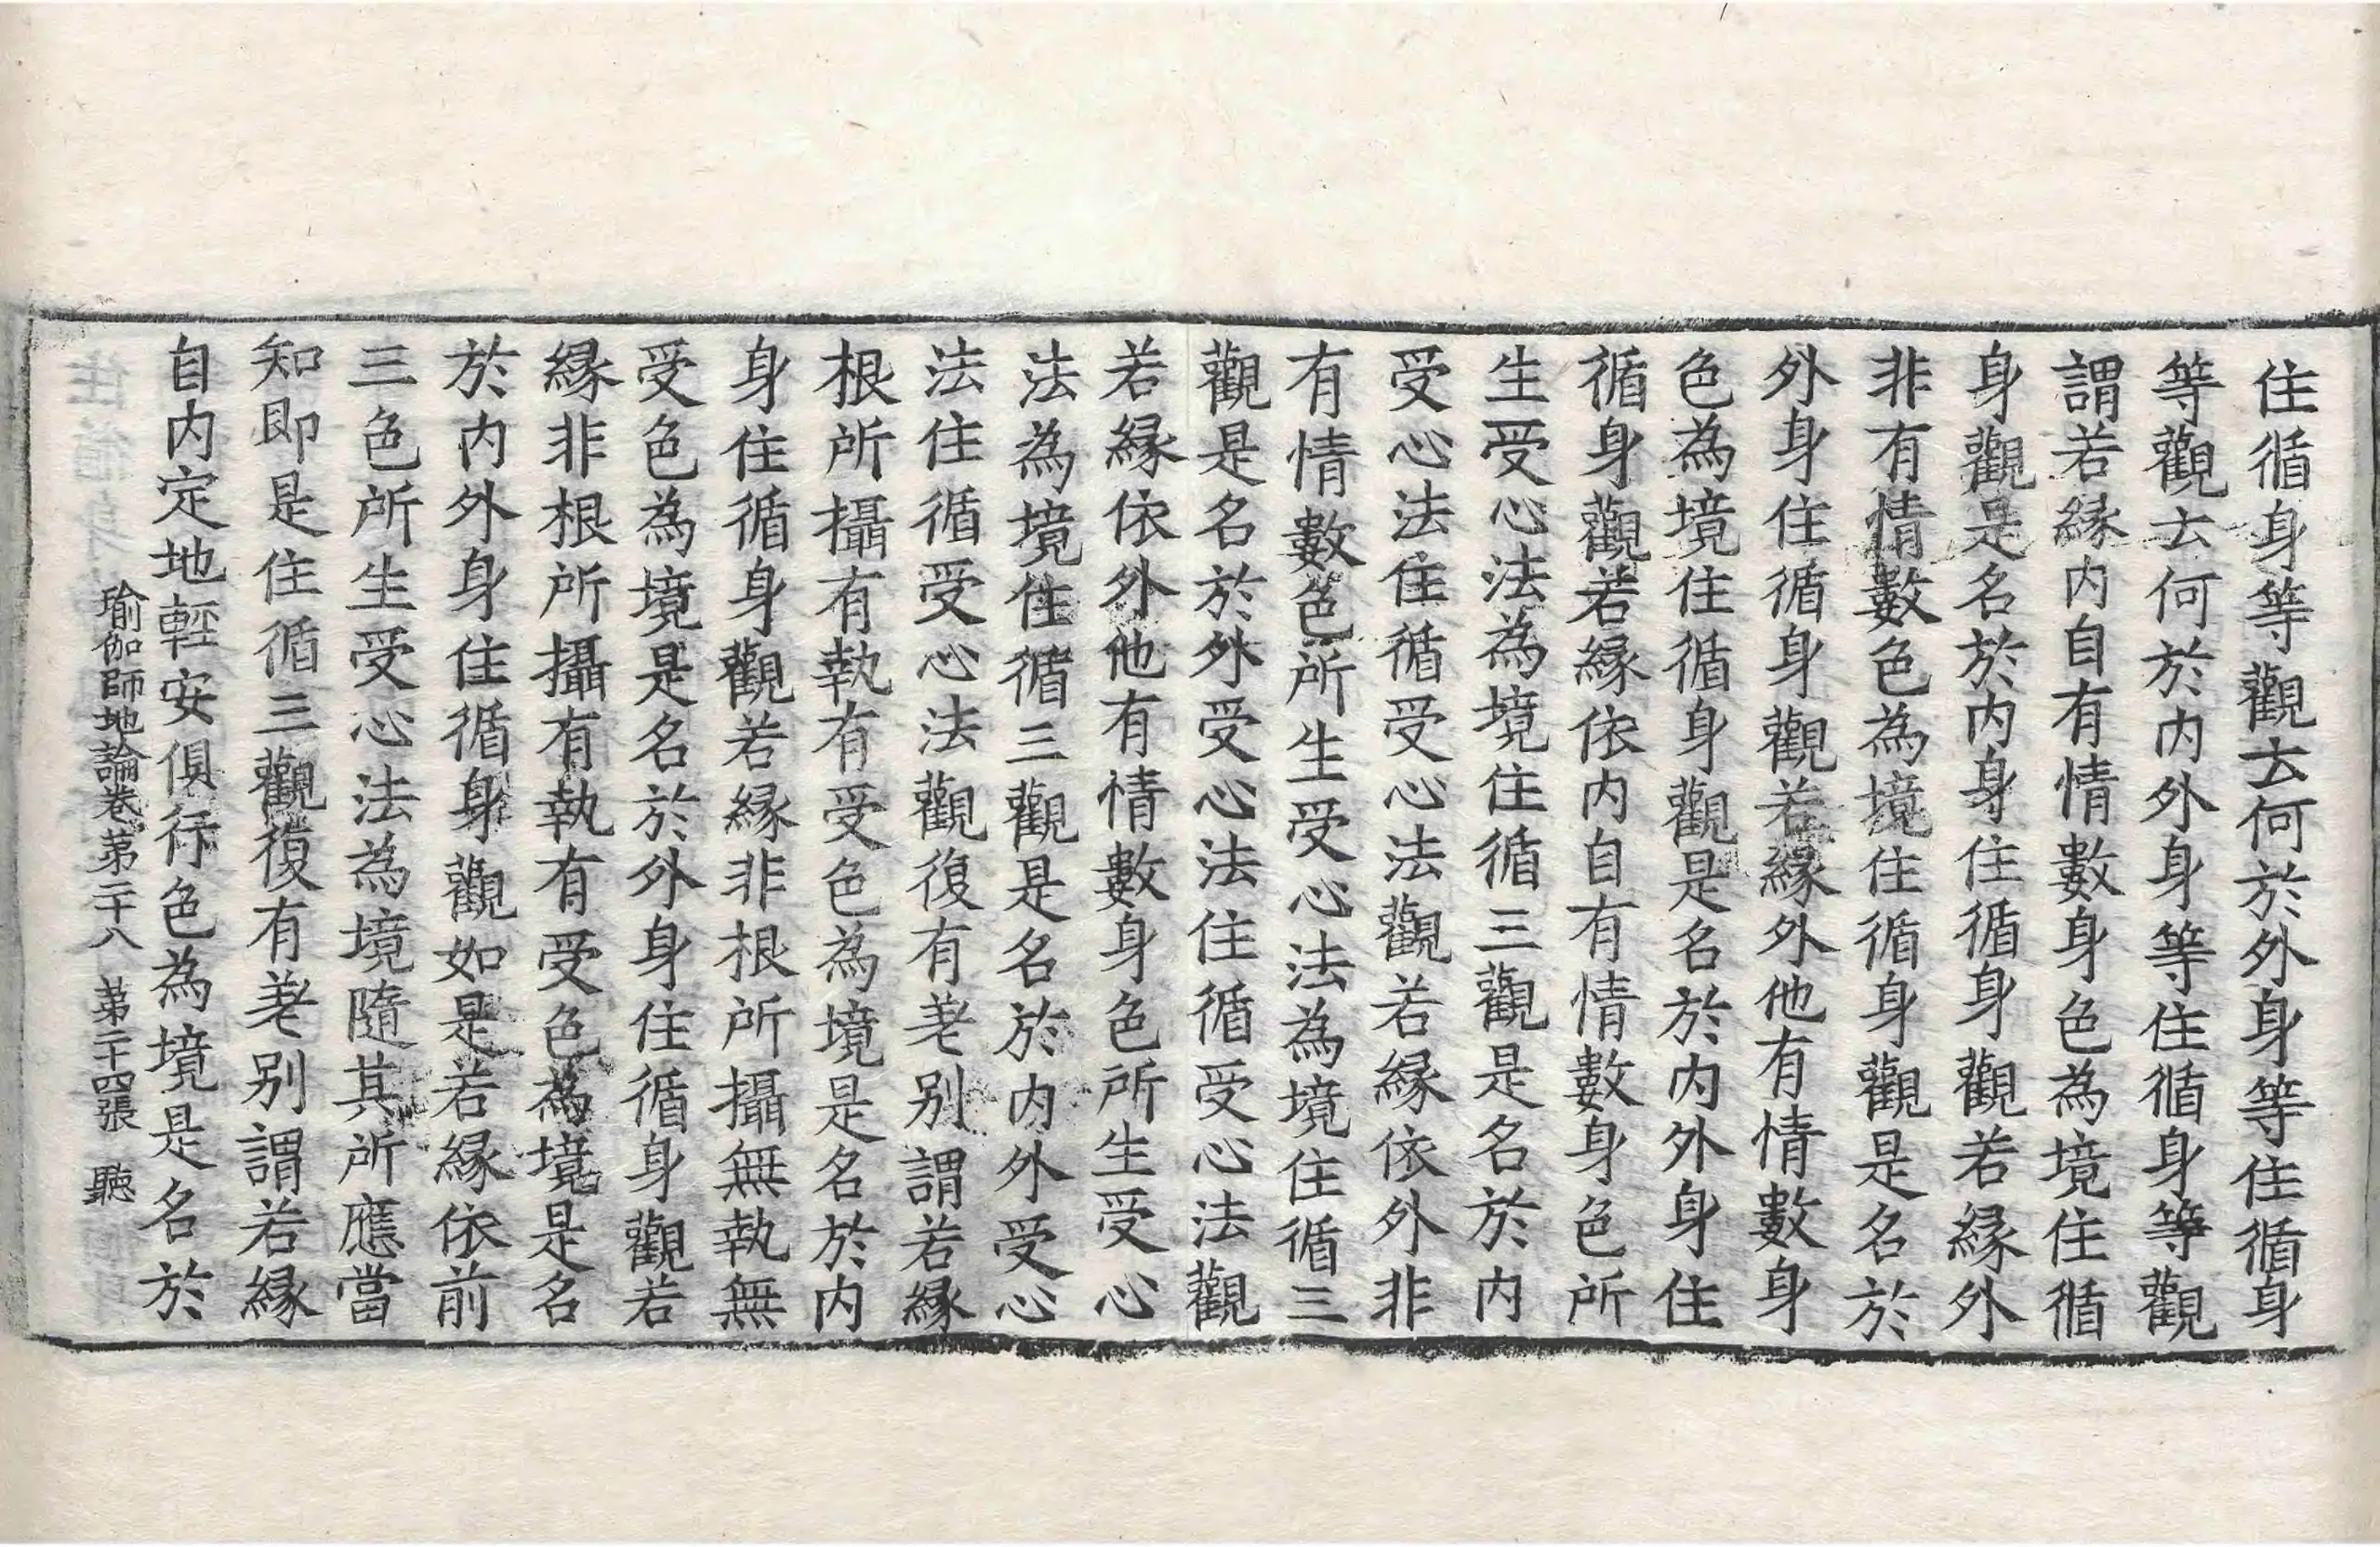 住循身等觀云何於外身等住循身
等觀云何於内外身等住循身等觀
謂若縁内自有情數身色為境住循
身觀是名於内身住循身觀若縁外
非有情數色為境住循身觀是名於
外身住循身觀若縁外他有情數身
色為境住循身觀是名於内外身住
循身觀若縁依内自有情數身色所
生受心法為境住循三觀是名於内
受心法住循受心法觀若縁依外非
有情數色所生受心法為境住循三
觀是名於外受心法住循受心法觀
若縁依外他有情數身色所生受心
法為境住循三觀是名於内外受心
法住循受心法觀復有差别謂若縁
根所攝有執有受色為境是名於内
身住循身觀若縁非根所攝無執無
受色為境是名於外身住循身觀若
縁非根所攝有執有受色為境是名
於内外身住循身觀如是若縁依前
三色所生受心法為境隨其所應當
知即是住循三觀復有差别謂若縁
自内定地輕安俱行色為境是名於
瑜伽師地論卷苐二十八 苐二十四張 聽